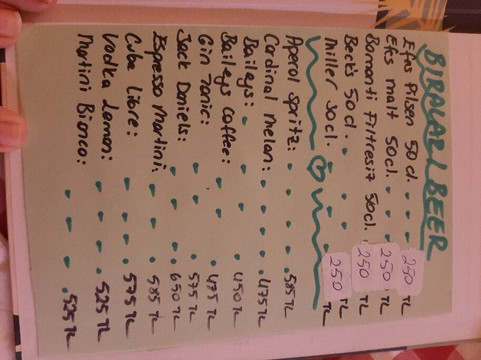 BİRALAR / BEER
Efes Pilsen 50 cl. 250 TL
Efes malt 50cl. 250 TL
Bomonti Filtresiz 50cl. 250 TL
Beck's 50 cl. 250 TL
Miller 50cl. TL
Aperol Spritz: 585 TL
Cardinal Melon: 475 TL
Baileys: 450 TL
Baileys Coffee: 475 TL
Gin Tonic: 575 TL
Jack Daniels: 650 TL
Espresso Martini: 585 TL
Cuba Libre: 575 TL
Vodka Lemon: 525 TL
Martini Bianco: 525 TL